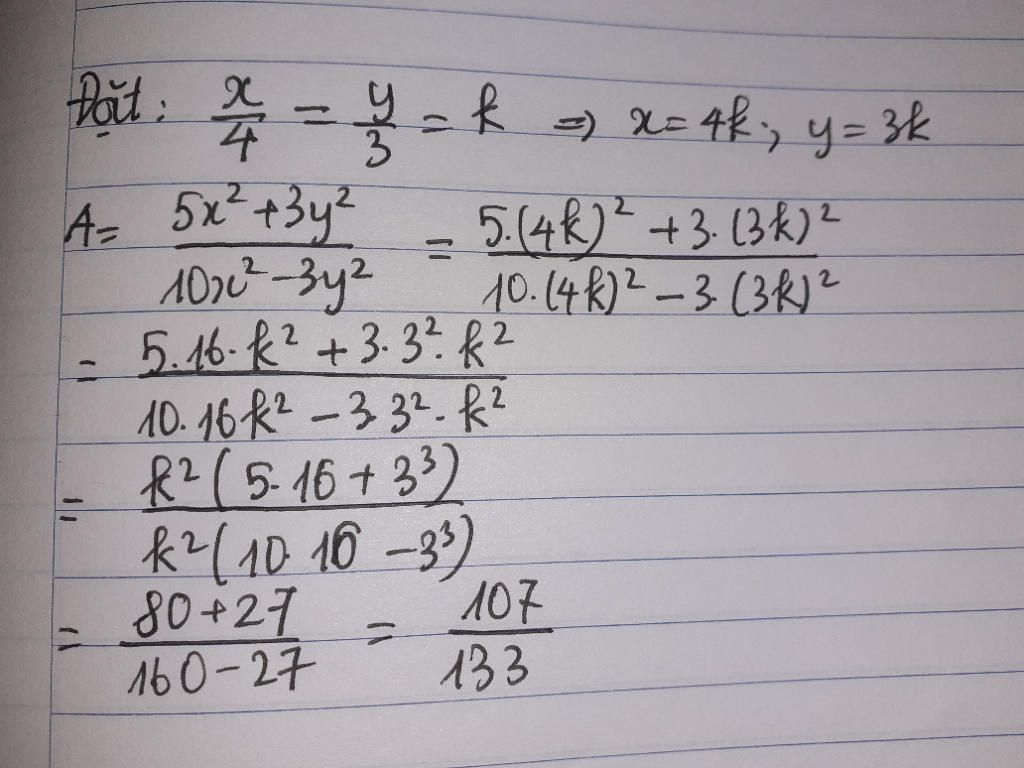 Đặt: x/4 = y/3 = k => x = 4k; y = 3k
A = (5x² + 3y²)/(10x² - 3y²) = (5.(4k)² + 3.(3k)²)/(10.(4k)² - 3.(3k)²)
= (5.16.k² + 3.3².k²)/(10.16k² - 3.3².k²)
= (k²(5.16 + 3³))/(k²(10.16 - 3³))
= (80 + 27)/(160 - 27) = 107/133